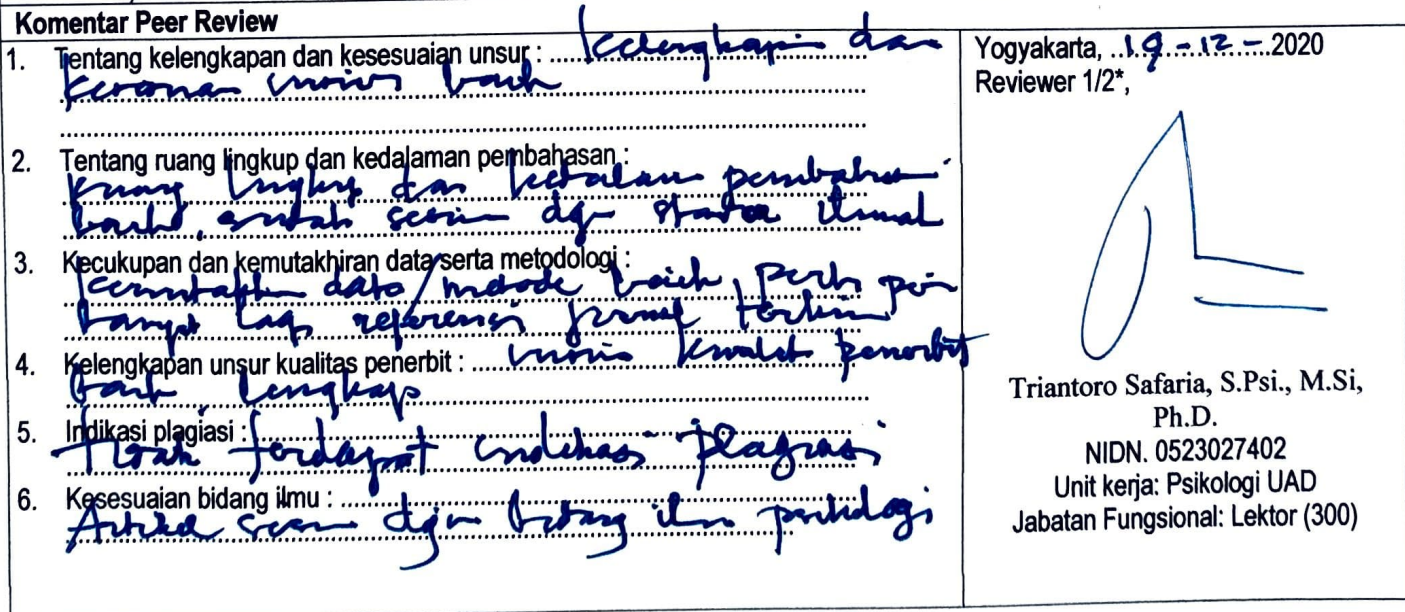 Komentar Peer Review
1. Tentang kelengkapan dan kesesuaian unsur : kelengkapan dan
unsur baik
2. Tentang ruang lingkup dan kedalaman pembahasan :
Ruang lingkup dan kedalaman pembahasan
baik, sudah sesuai dgn standar ilmiah
3. Kecukupan dan kemutakhiran data serta metodologi :
kemutakhiran data/metode baik, perlu
banyak lagi referensi jurnal terkini
4. Kelengkapan unsur kualitas penerbit : unsur kualitas penerbit
baik, lengkap
5. Indikasi plagiasi :
tidak terdapat indikasi plagiasi
6. Kesesuaian bidang ilmu :
Artikel sesuai dgn bidang ilmu psikologi
Yogyakarta, ..19-12-..2020
Reviewer 1/2*,
Triantoro Safaria, S.Psi., M.Si,
Ph.D.
NIDN. 0523027402
Unit kerja: Psikologi UAD
Jabatan Fungsional: Lektor (300)